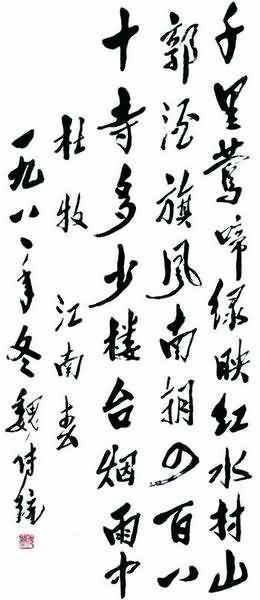 千里莺啼绿映红水村山
郭酒旗风南朝四百八
十寺多少楼台烟雨中
杜牧 江南春
一九八年冬 魏